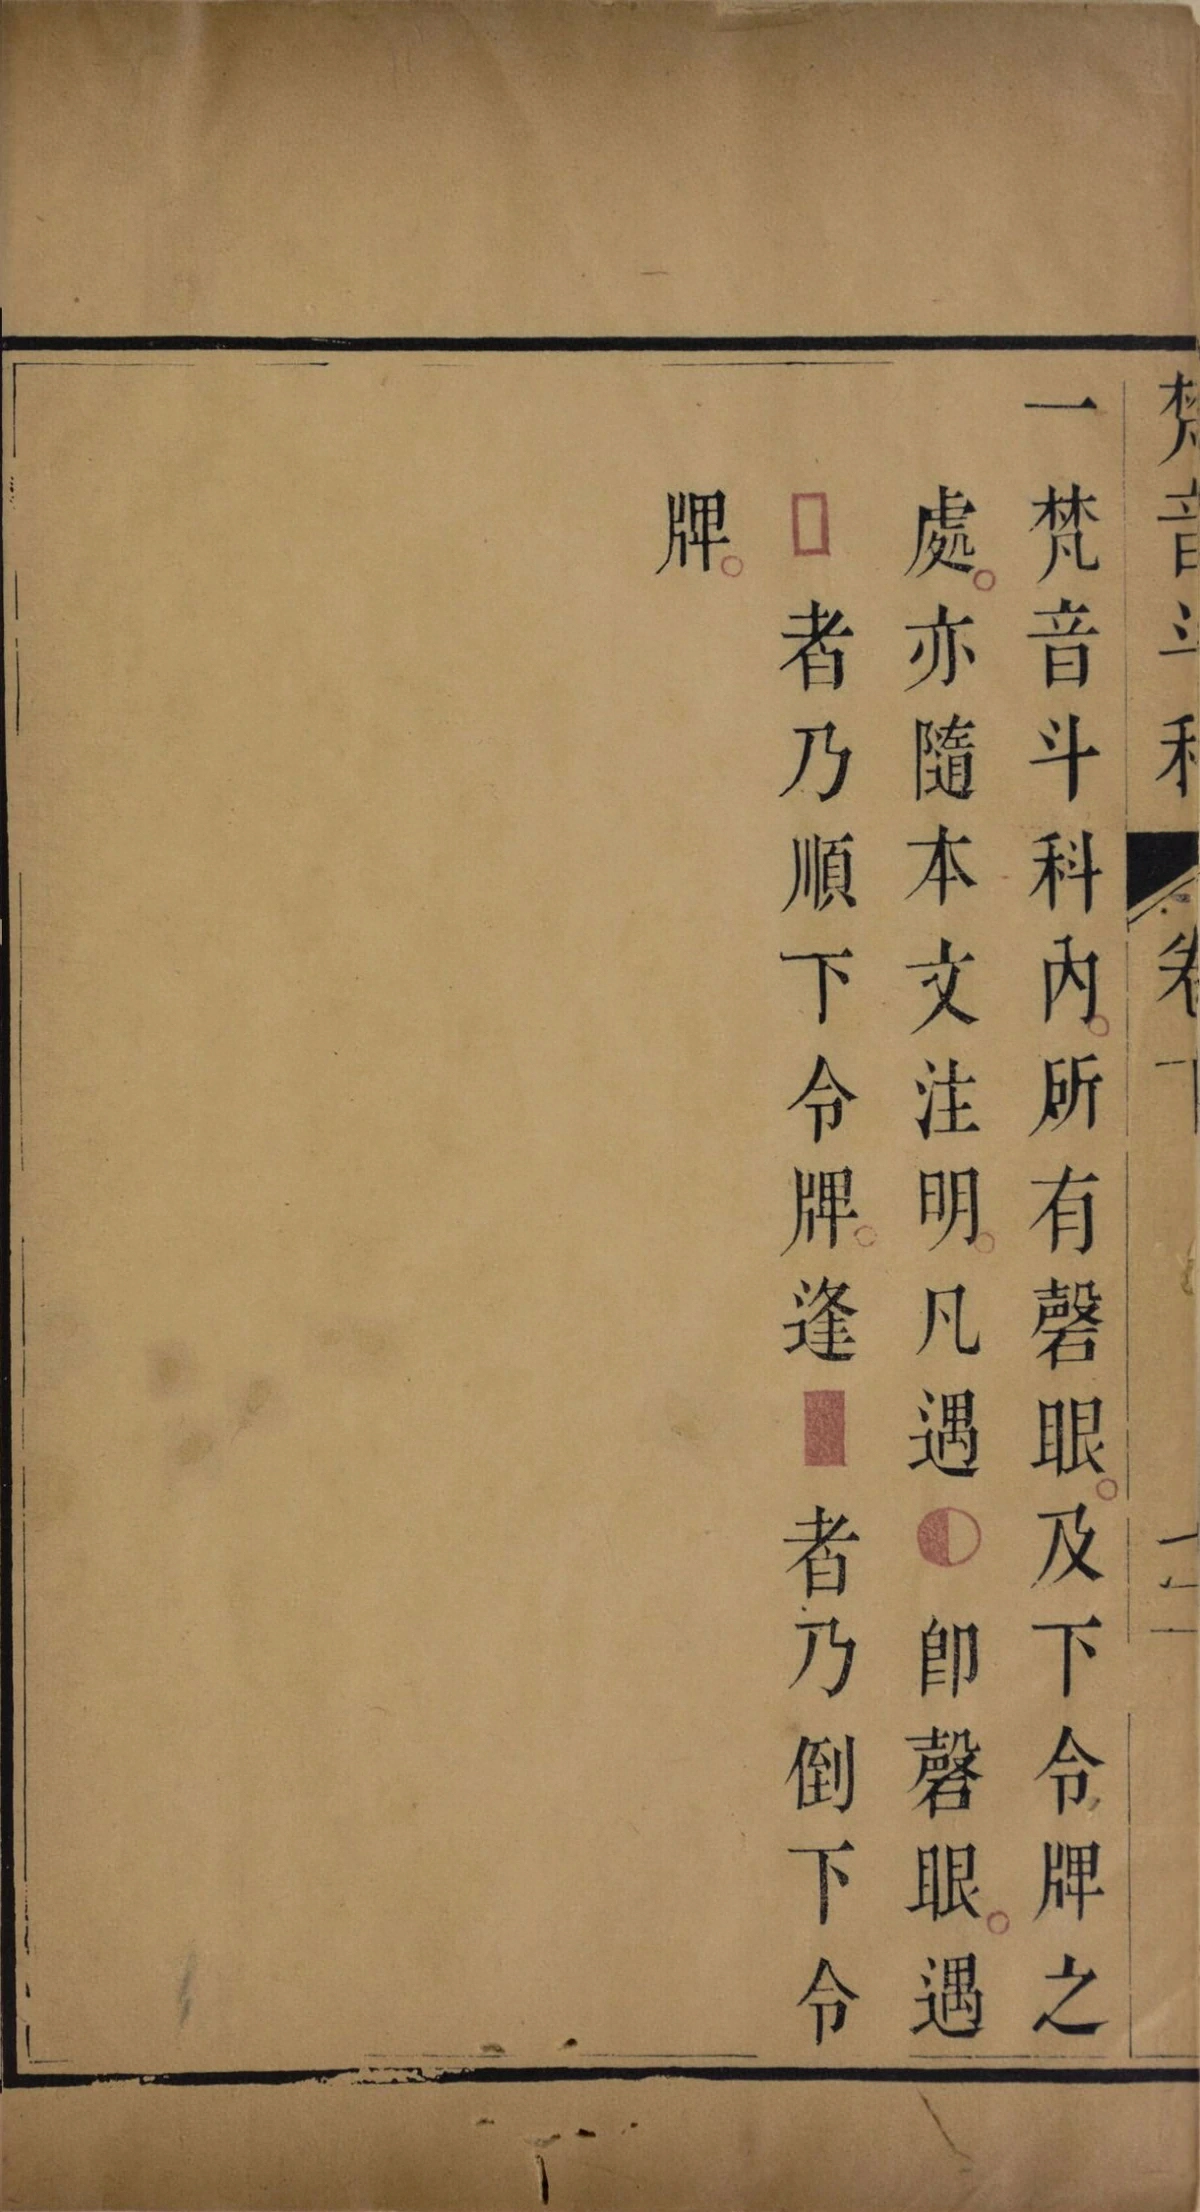 梵音斗科 卷下
一梵音斗科內。所有磬眼。及下令牌之
處。亦隨本文注明。凡遇◐卽磬眼。遇
▯者乃順下令牌。逢▮者乃倒下令
牌。